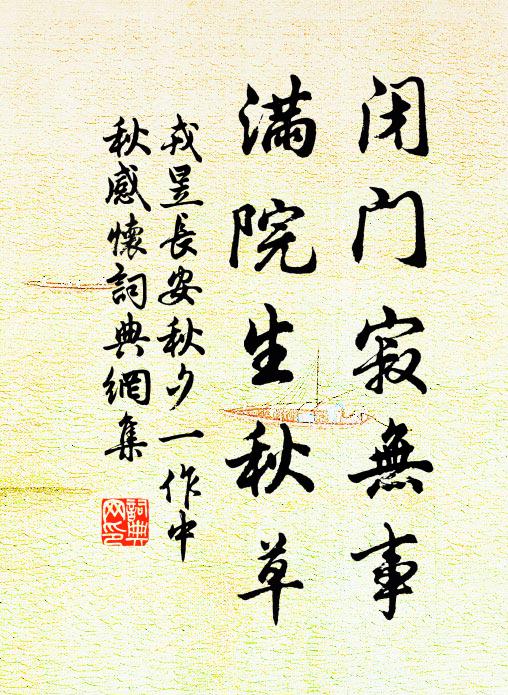 闭门寂無事
满院生秋草
戎昱長安秋夕一作中
秋感懷詞典網集
詞典网印